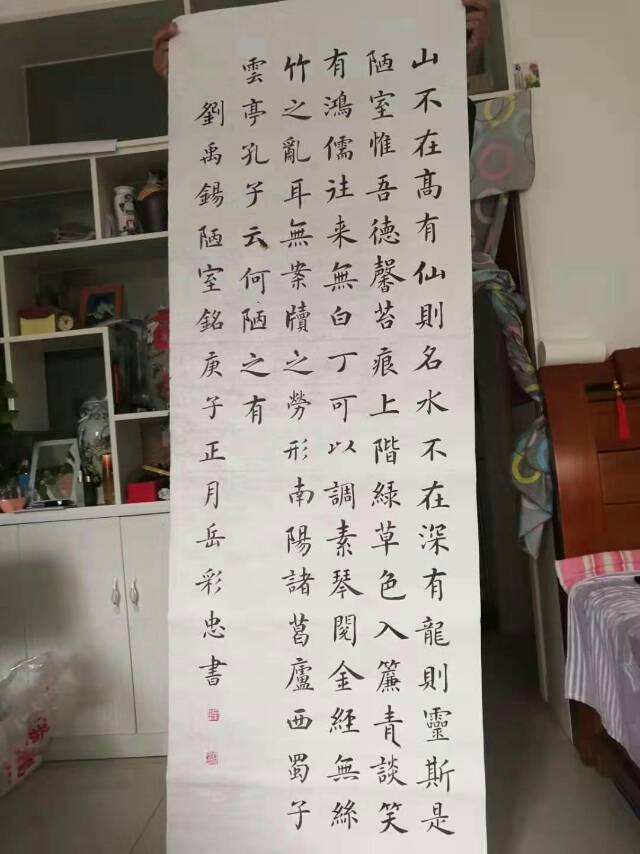 山不在高有仙則名水不在深有龍則靈斯是
陋室惟吾德馨苔痕上階緑草色入簾青談笑
有鴻儒往来無白丁可以調素琴閱金經無絲
竹之亂耳無案牘之勞形南陽諸葛廬西蜀子
雲亭孔子云何陋之有
劉禹錫陋室銘庚子正月岳彩忠書